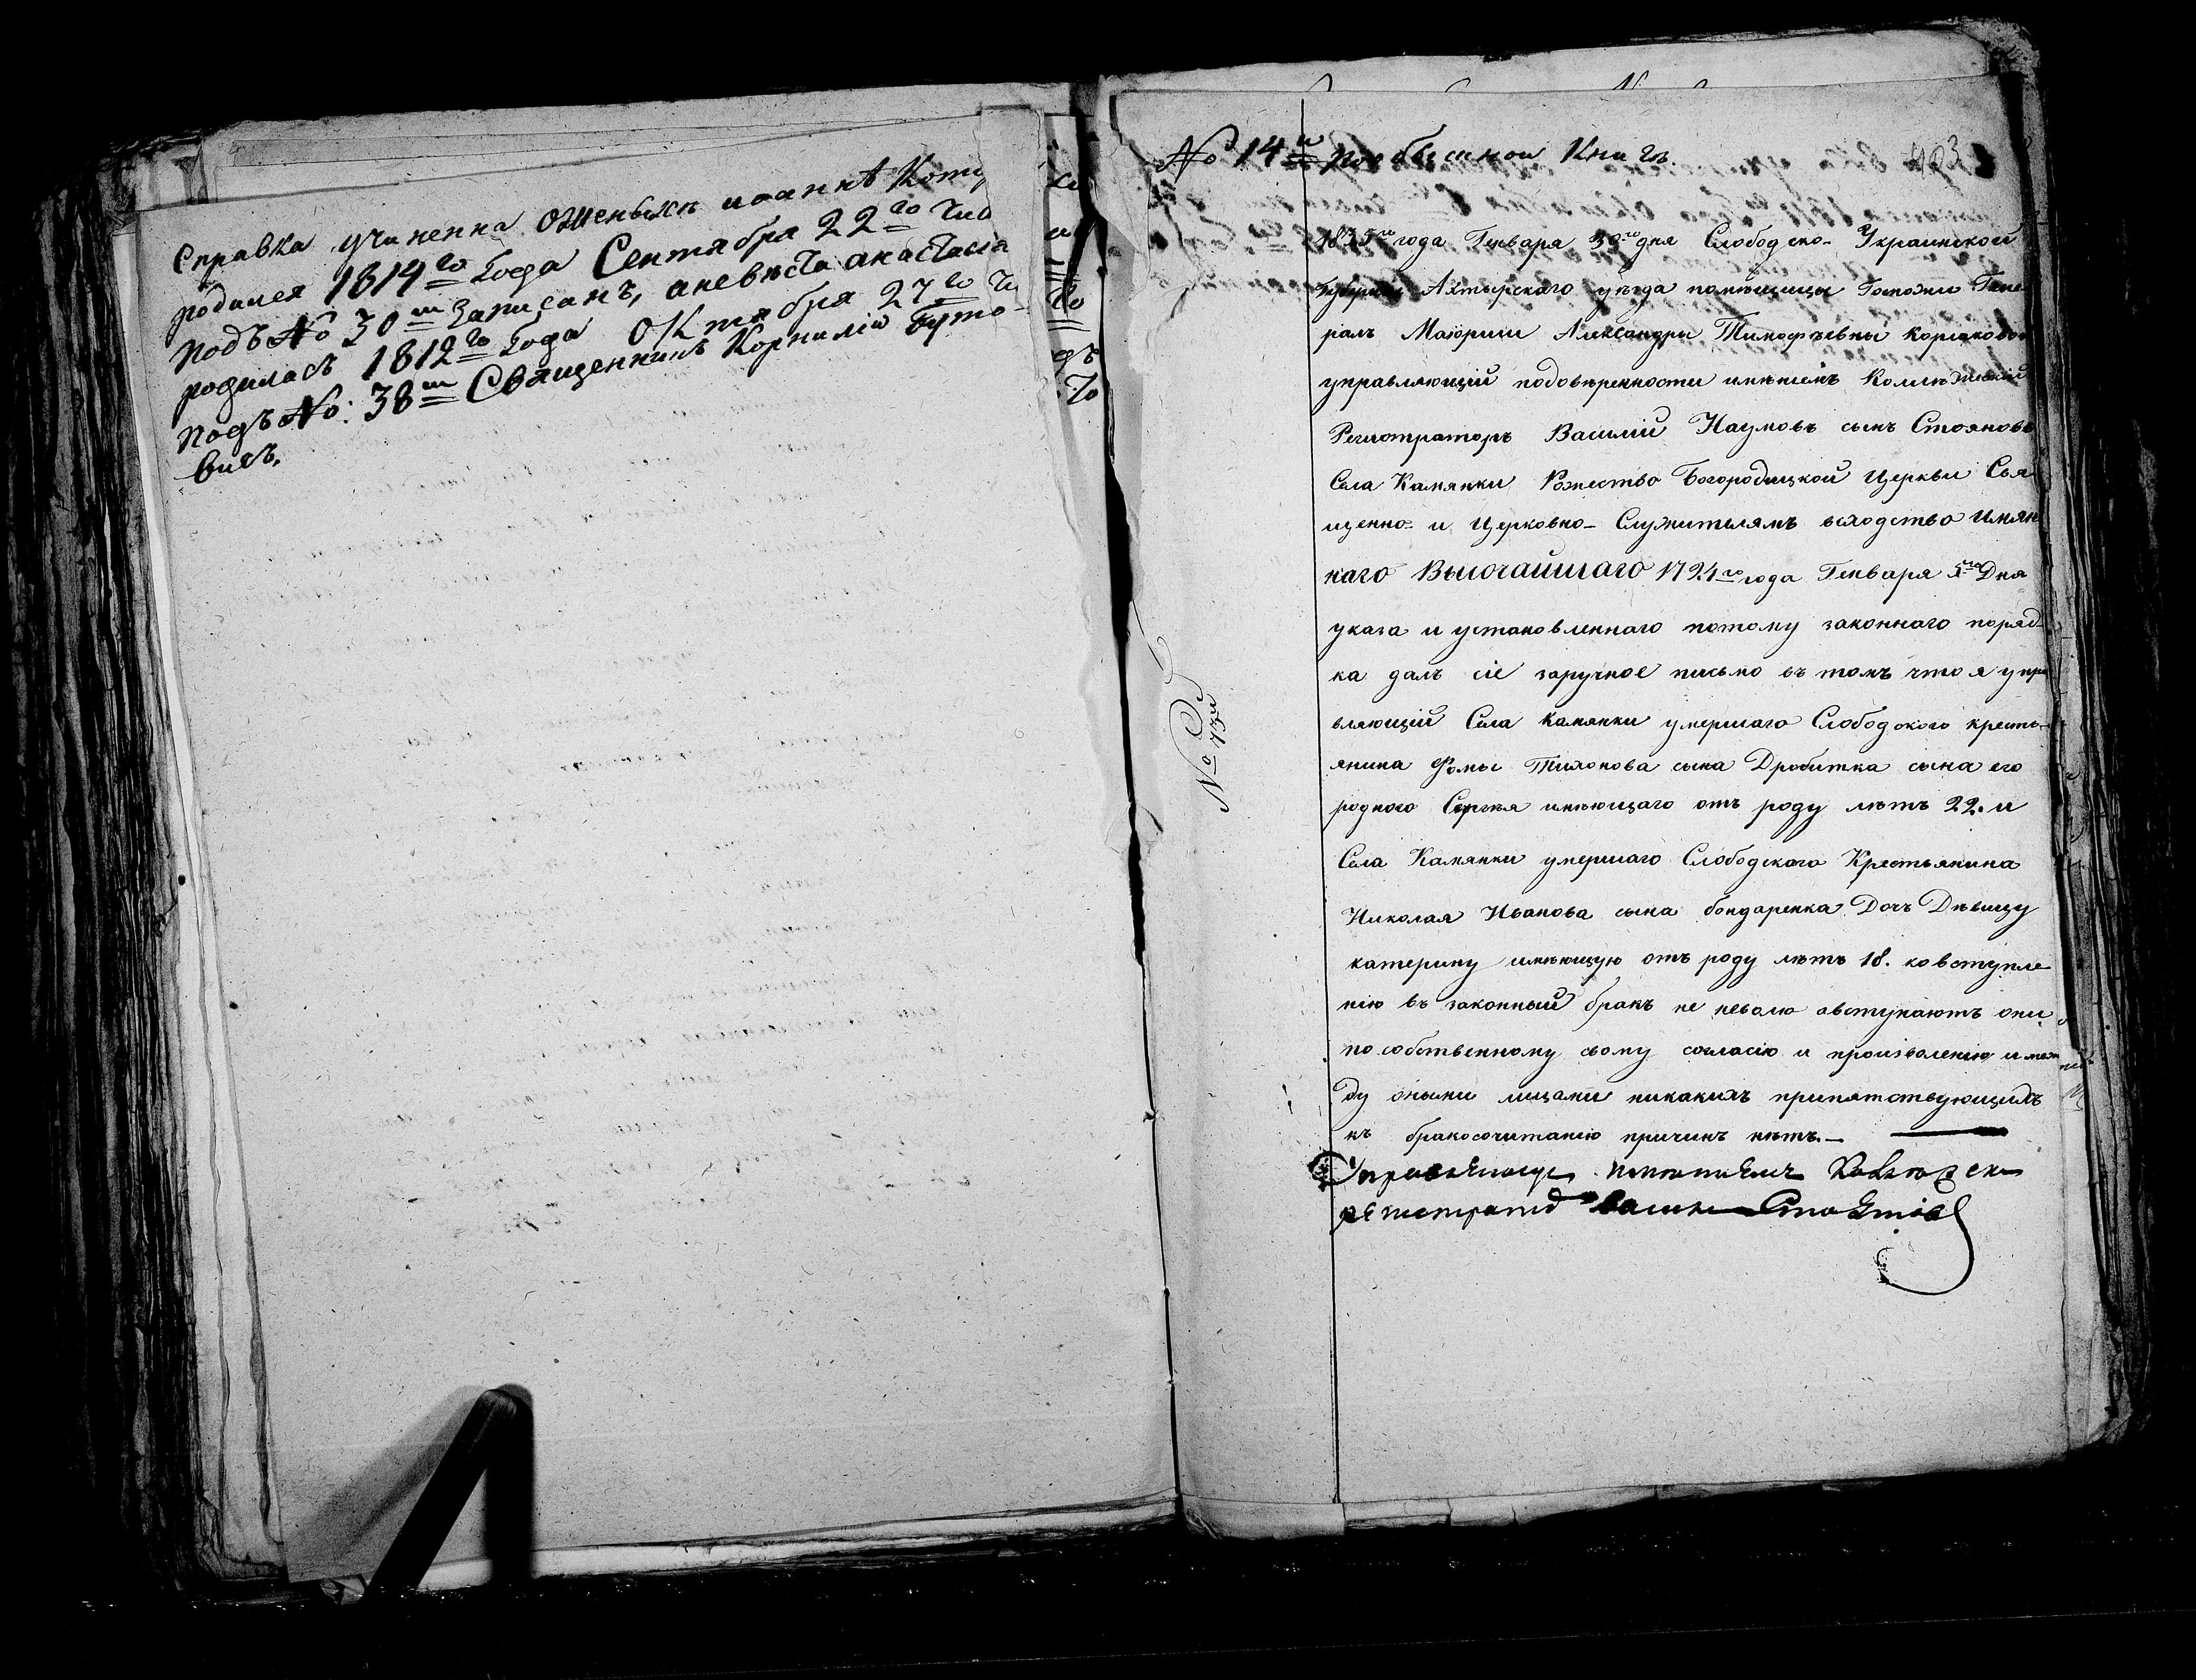 Справка учиненна ожених иоаннѣ Коту
родился 1814го Года Сентября 22го Чис
подъ No 30м Записанъ, аневѣста анастасіа
родиласъ 1812го Года Октября 27го Чи
подъ No: 38м Священникъ Корнилій Буто-
вичъ.
No 14й пообыскной Книгѣ.
1835го года Генваря 30го дня Слободско-Украинской
Губерніи Ахтырскаго уѣзда помѣщицы Госпожи Гене
ралъ Маіорши Александры Тимофѣевны Корсаковой
управляющій подовѣренности имѣніемъ Коллежскій
Регистраторъ Василій Наумовъ сынъ Стояновъ
Села Камянки Рожество Богородицкой Церкви Свя
щенно- и Церковно-Служителямъ всходство Имян
наго Высочайшаго 1724го года Генваря 5го Дня
указа и установленнаго потому законнаго поряд-
ка далъ сіе заручное письмо въ томъ что я упра
вляющій Села Камянки умершаго Слободского кресть-
янина Фомы Тихонова сына Дробитка сына его
родного Сергѣя имѣющаго отъ роду лѣтъ 22. и
Села Камянки умершаго Слободскаго Крестьянина
Николая Иванова сына бондаренка Дочь Дѣвицу
катерину имѣющую отъ роду лѣтъ 18. ко вступле
нію въ законный бракъ не неволю авступаютъ они
по собственному свому согласію и произволенію и меж
ду оными лицами никакихъ припятствующихъ
къ бракосочитанію причинъ нѣтъ.—
No 73й